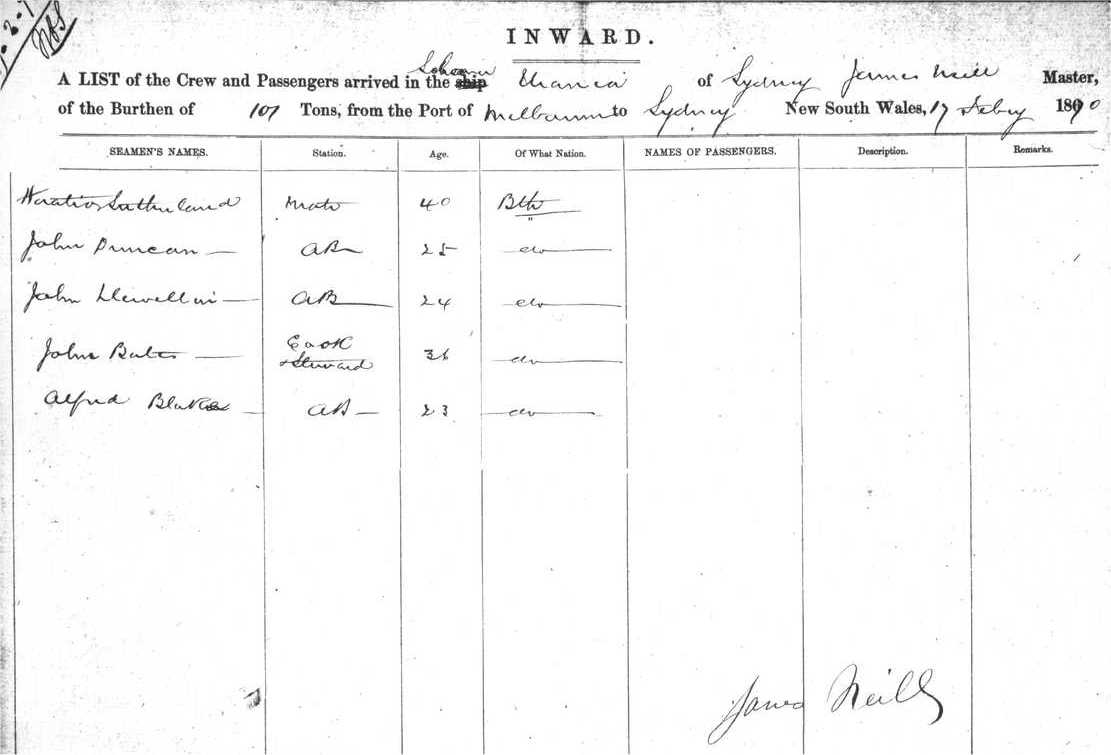 INWARD.
Schooner
A LIST of the Crew and Passengers arrived in the ship Urania of Sydney James Neill Master,
of the Burthen of 101 Tons, from the Port of Melbourne to Sydney New South Wales, 17 Feby 1890
SEAMEN'S NAMES. Station. Age. Of What Nation. NAMES OF PASSENGERS. Description. Remarks.
Horatio Sutherland Mate 40 Bth
John Duncan — AB 25 do
John Llewellin — AB 24 do
Cook
John Bates — 36 do
+ Steward
Alfred Blake — AB — 23 do
James Neill